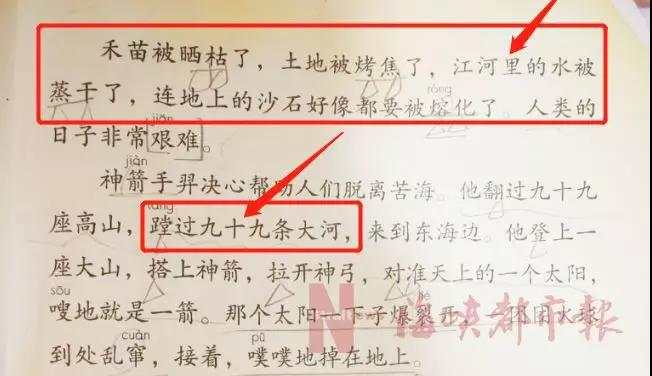 禾苗被晒枯了，土地被烤焦了，江河里的水被
róng
蒸干了，连地上的沙石好像都要被熔化了。人类的
jiān
日子非常艰难。
jiàn
神箭手羿决心帮助人们脱离苦海。他翻过九十九
tāng
座高山，蹚过九十九条大河，来到东海边。他登上一
座大山，搭上神箭，拉开神弓，对准天上的一个太阳，
sōu
嗖地就是一箭。那个太阳一下子爆裂开，一团团火球
cuàn pū
到处乱窜，接着，噗噗地掉在地上。
N 海峡都市报